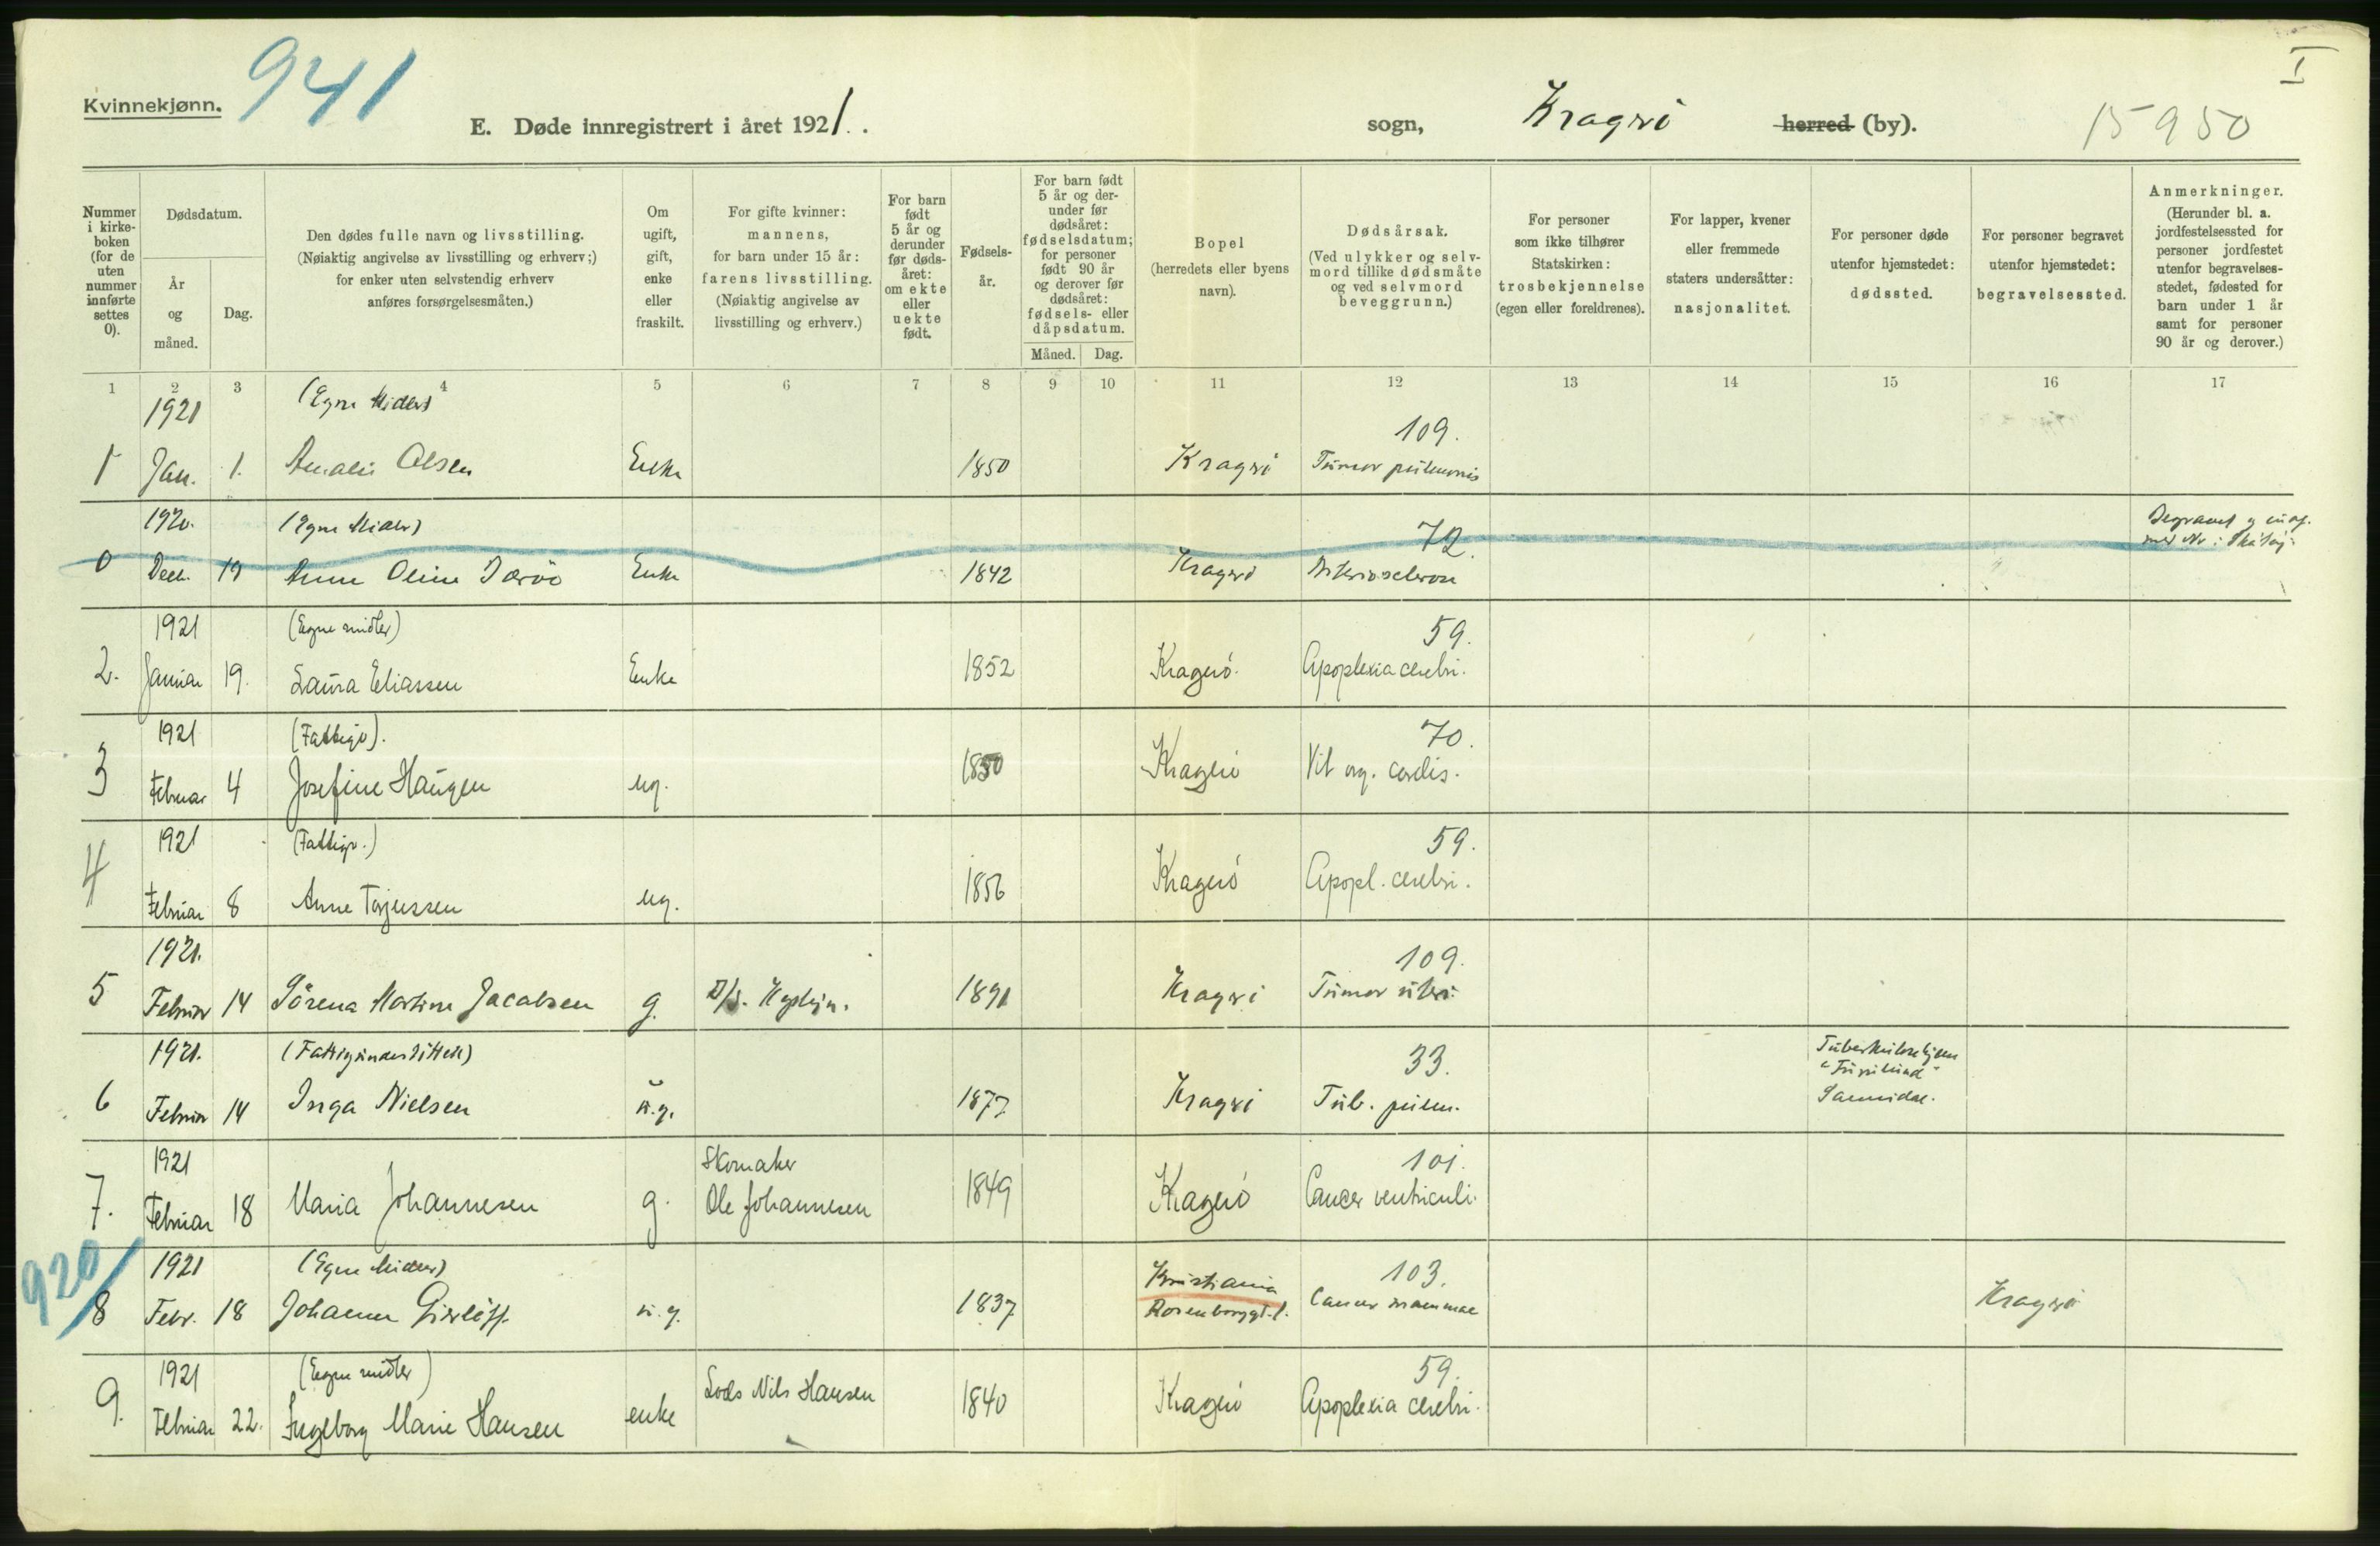 Kvinnekjønn.
941
I
E. Døde innregistrert i året 1921.
sogn, Kragerö herred (by).
15950
Nummer i kirkeboken (for de uten nummer innførte settes 0).
Dødsdatum.
År og måned.
Dag.
Den dødes fulle navn og livsstilling.
(Nøiaktig angivelse av livsstilling og erhverv;)
for enker uten selvstendig erhverv
anføres forsørgelsesmåten.)
Om ugift, gift, enke eller fraskilt.
For gifte kvinner:
mannens,
for barn under 15 år:
farens livsstilling.
(Nøiaktig angivelse av
livsstilling og erhverv.)
For barn født 5 år og derunder før dødsåret: om ekte eller uekte født.
Fødselsår.
For barn født 5 år og derunder før dødsåret: fødselsdatum; for personer født 90 år og derover før dødsåret: fødsels- eller dåpsdatum.
Måned. Dag.
Bopel
(herredets eller byens
navn).
Dødsårsak.
(Ved ulykker og selvmord tillike dødsmåte og ved selvmord beveggrunn.)
For personer
som ikke tilhører
Statskirken:
trosbekjennelse
(egen eller foreldrenes).
For lapper, kvener
eller fremmede
staters undersåtter:
nasjonalitet.
For personer døde
utenfor hjemstedet:
dødssted.
For personer begravet
utenfor hjemstedet:
begravelsessted.
Anmerkninger.
(Herunder bl. a.
jordfestelsessted for
personer jordfestet
utenfor begravelses-
stedet, fødested for
barn under 1 år
samt for personer
90 år og derover.)
1 2 3 4 5 6 7 8 9 10 11 12 13 14 15 16 17
1921 (Egne Midler) 109.
1 Jan. 1. Amalie Olsen Enke 1850 Kragerö Tumor pulmonis
1920. (Egne Midler) 72.
0 Dec. 19 Anne Oline Enke 1842 Kragerö Arteriosclerose
Begravet
1921 (Egne midler) 59.
2. Januar 19. Laura Eliassen Enke 1852 Kragerö. Apoplexia cerebri.
1921 (Fattigv). 70.
3 Februar 4 Josefine Haugen ug. 1850 Kragerö Vit. org. cordis.
1921 (Fattigv.) 59.
4 Februar 8 Anne Terjussen ug. 1856 Kragerö Apopl. cerebri.
1921. 109.
5 Februar 14 Sörena Martine Jacobsen g. 1891 Kragerö Tumor uteri
1921. (Fattigunderstöttet) 33.
6 Februar 14 Inga Nielsen u.g. 1877 Kragerö Tub. pulm.
Tuberkulosehjem
Sannidal.
1921 Skomaker 101.
7. Februar 18 Maria Johannesen g. Ole Johannesen 1849 Kragerö Cancer ventriculi.
920
1921 (Egne Midler) Kristiania 103.
8 Febr. 18 Johanne u.g. 1837 Rosenborggt. 1. Cancer mammae Kragerö
1921 (Egne midler) Lods Nils Hansen 59.
9. Februar 22. Ingeborg Marie Hansen enke 1840 Kragerö Apoplexia cerebri.